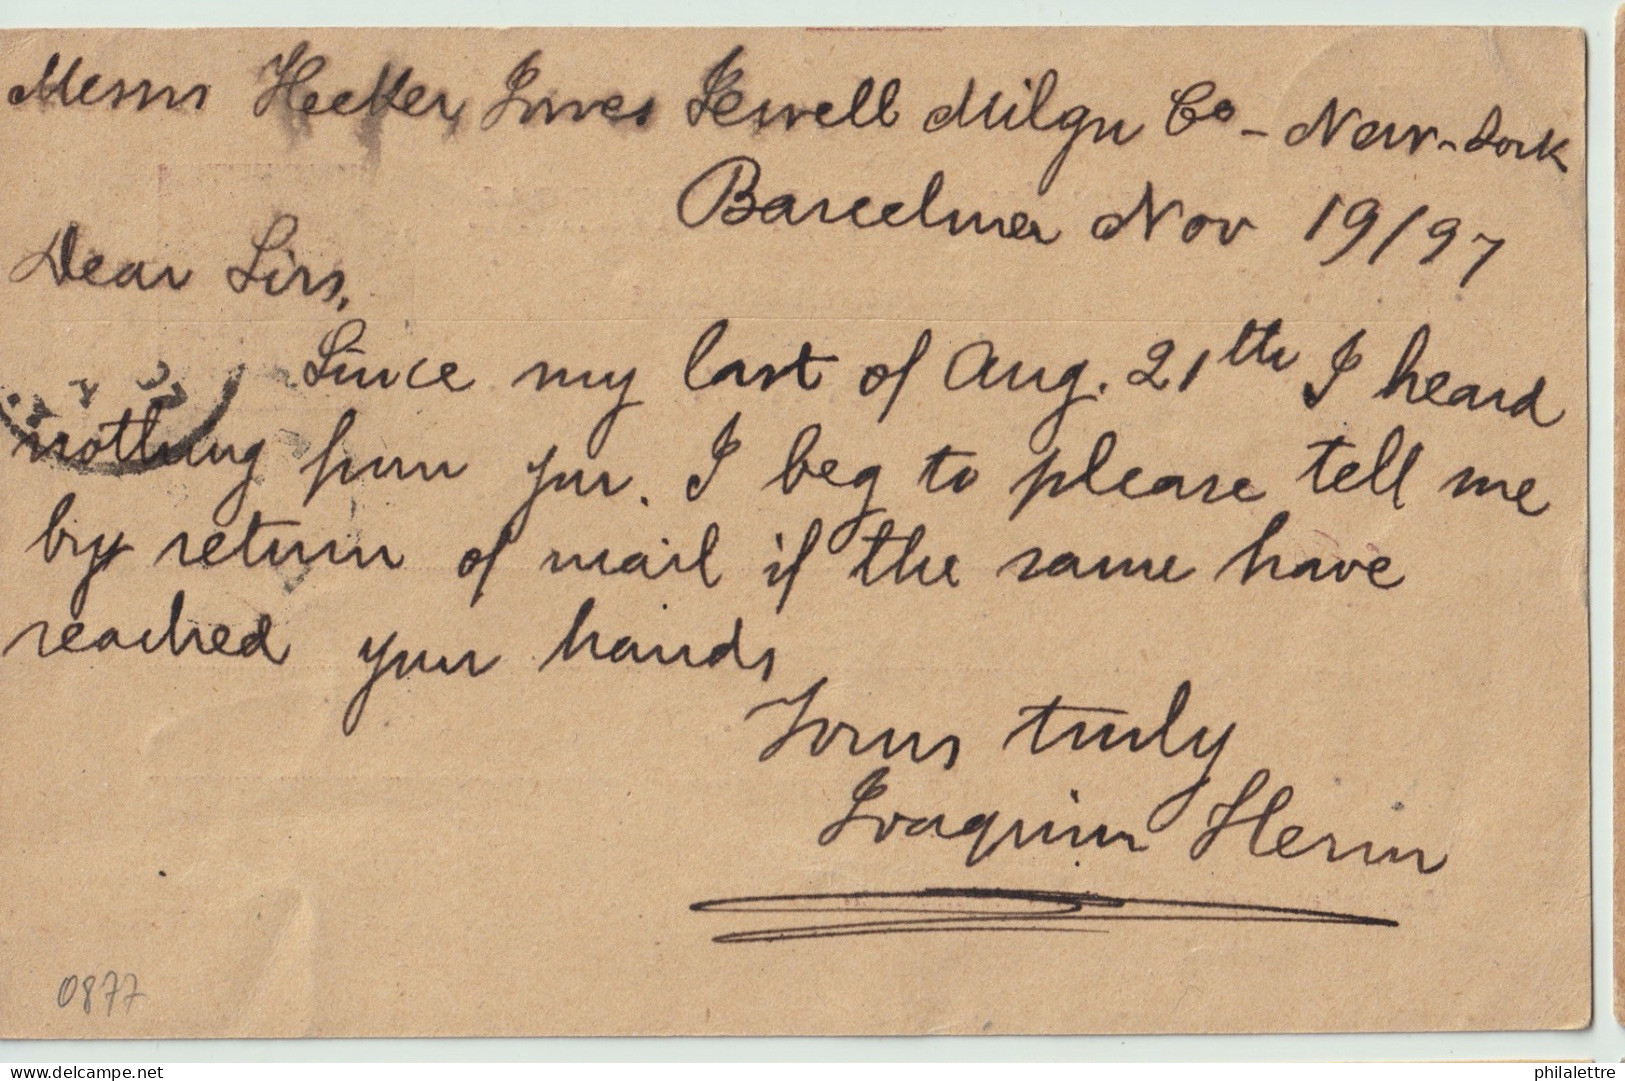 Messrs Hecker, Jones Jewell Milgn Co - New-York
Barcelona Nov 19/97
Dear Sirs,
Since my last of Aug. 21th I heard
nothing from you. I beg to please tell me
by return of mail if the same have
reached your hands,
Yours truly
Joaquim
0877
delcampe.net
philalettre